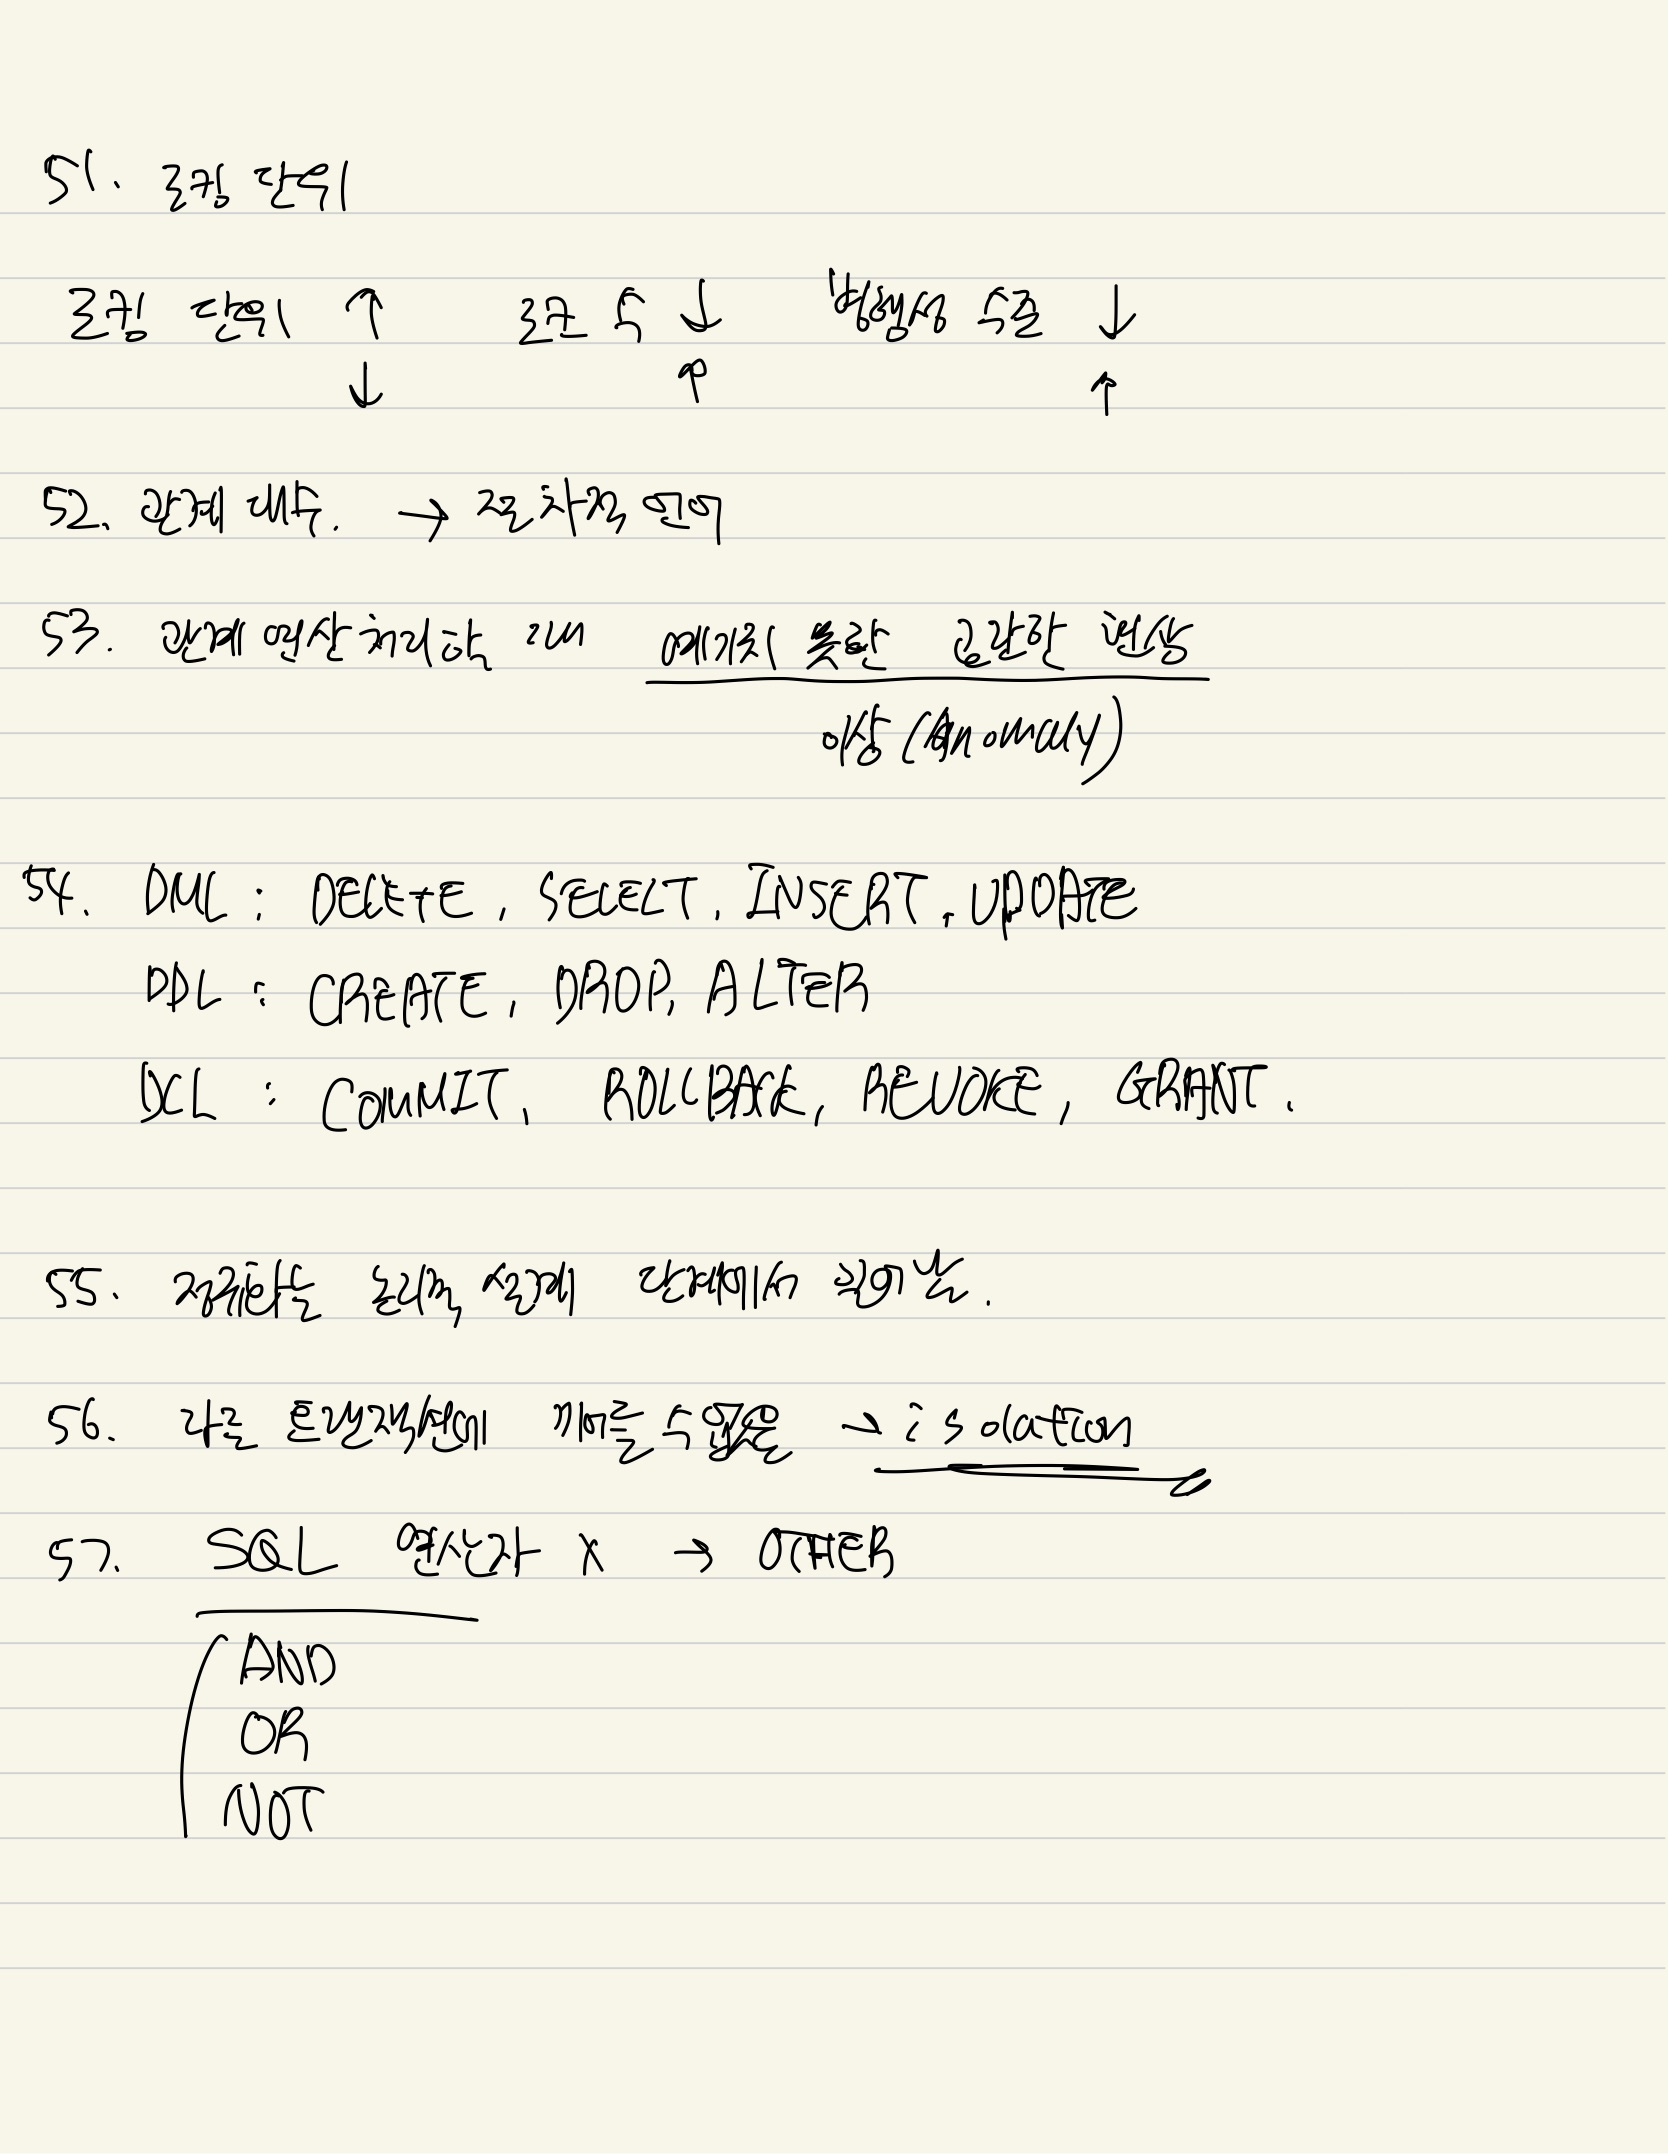 51. 로킹 단위
로킹 단위 ↑ 로크 수 ↓ 병행성 수준 ↓
↓ ↑ ↑
52. 관계 대수. → 절차적 언어
53. 관계 연산 처리할 때 예기치 못한 곤란한 현상
이상 (Anomaly)
54. DML : DELETE, SELECT, INSERT, UPDATE
DDL : CREATE, DROP, ALTER
DCL : COMMIT, ROLLBACK, REVOKE, GRANT.
55. 정규화는 논리적 설계 단계에서 일어남.
56. 다른 트랜잭션에 끼어들 수 없음 → isolation
57. SQL 연산자 X → OTHER
AND
OR
NOT